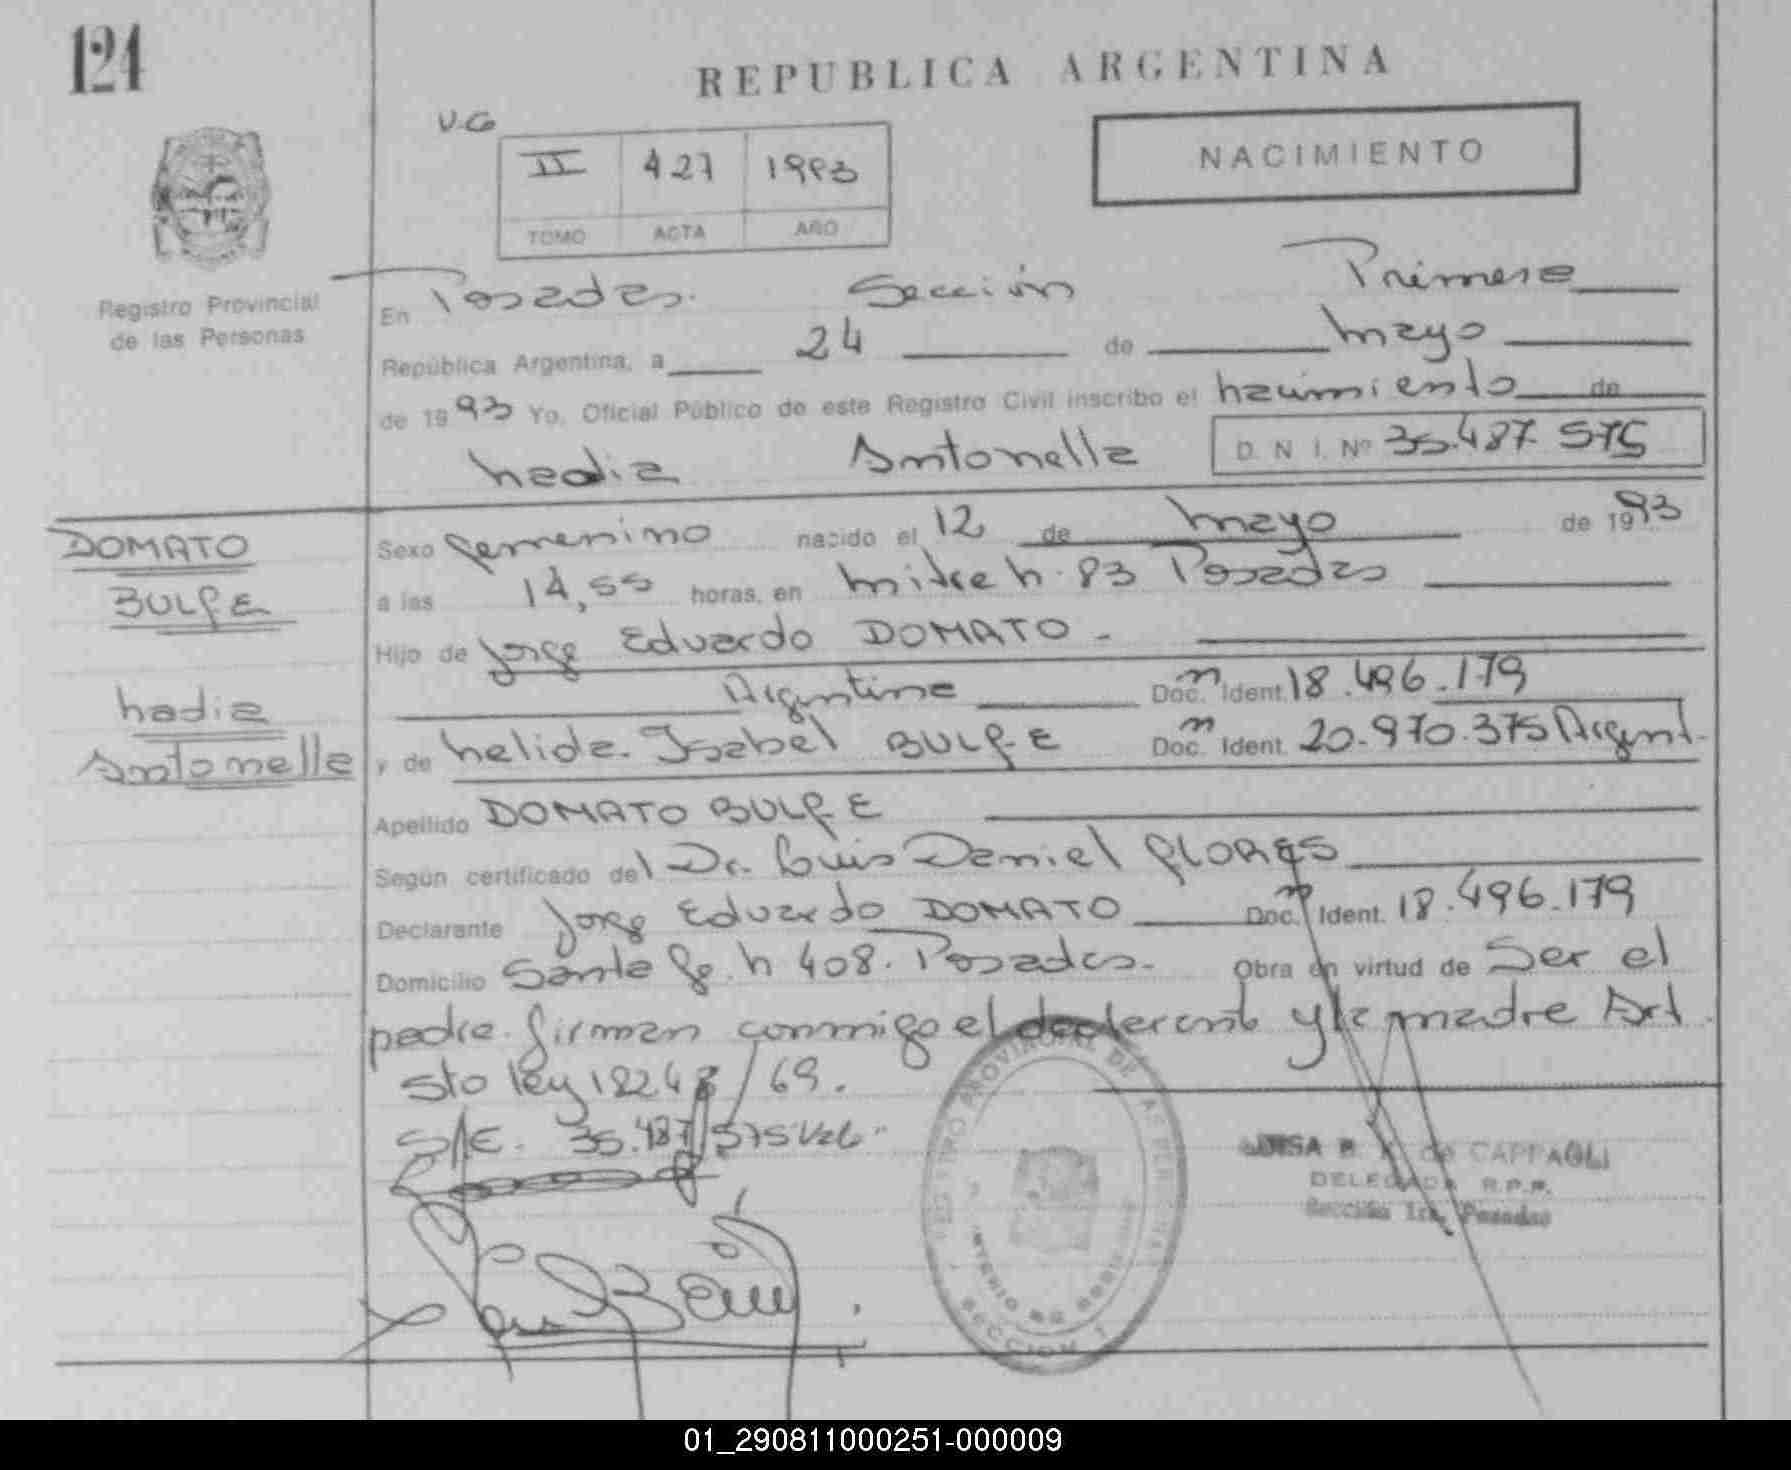 124
REPUBLICA ARGENTINA
V.G
II 427 1993
TOMO ACTA AÑO
NACIMIENTO
Registro Provincial
de las Personas
En Posadas. Sección Primera
República Argentina, a 24 de mayo
de 1993 Yo, Oficial Público de este Registro Civil inscribo el nacimiento de
Nadia Antonella D. N. I. Nº 35.487.575
DOMATO
BULFE
Nadia
Antonella
Sexo femenino nacido el 12 de mayo de 1993
a las 14,55 horas, en Mitre N. 83 Posadas
Hijo de Jorge Eduardo DOMATO -
Argentina Doc. Ident. 18.496.179
y de Nelida Isabel BULFE Doc. Ident. 20.970.375 Argent.
Apellido DOMATO BULFE
Según certificado del Dr. Luis Daniel FLORES
Declarante Jorge Eduardo DOMATO Doc. Ident. 18.496.179
Domicilio Santa Fe. N 408. Posadas. Obra en virtud de Ser el
padre. firman conmigo el declarante y la madre Art.
5to ley 18248/69.
S/E. 35.487.575 Vale"
REGISTRO PROVINCIAL DE LAS PERSONAS
SECCION 1
LUISA de CAPPAGLI
DELEGADA R.P.P.
Sección 1ra. Posadas
01_290811000251-000009